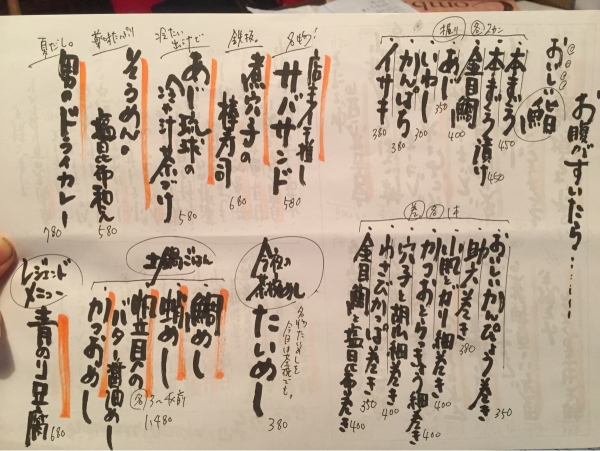 お腹がすいたら……
おいしい鮨
握り 各2カン
本まぐろ 450
本まぐろ漬け 450
金目鯛 400
あじ 350
いわし 300
かんぱち 380
イサキ 380
名物!
店主イチ推し
サバサンド 580
鉄板
煮穴子の
棒寿司 680
冷たい出汁で
あじ琉球の
冷や汁茶づけ 580
そうめんの
塩昆布和え 580
夏だし。
男のドライカレー 780
巻き 各1本
おいしいかんぴょう巻き 350
助六巻き 380
小肌とガリ細巻き 400
かつおとらっきょう細巻き 400
穴子と胡瓜細巻き 400
わさびかっぱ巻き 350
金目鯛と塩昆布巻き 400
今夜の
たいめし 380
名物たいめしを
土鍋ごはん
鯛めし
蛸めし
帆立貝の
バター醤油めし
かつおめし
各3〜4人前
1,480
レジェンド
メニュー
青のり豆腐 680